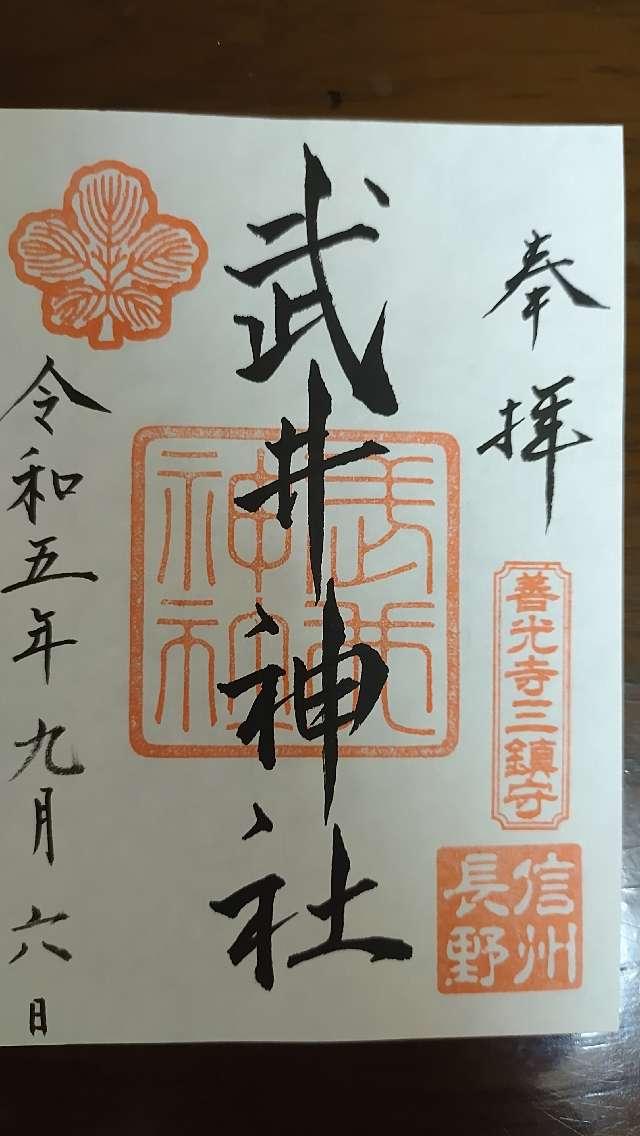 奉拝
善光寺三鎮守
信州
長野
武井神社
令和五年九月六日